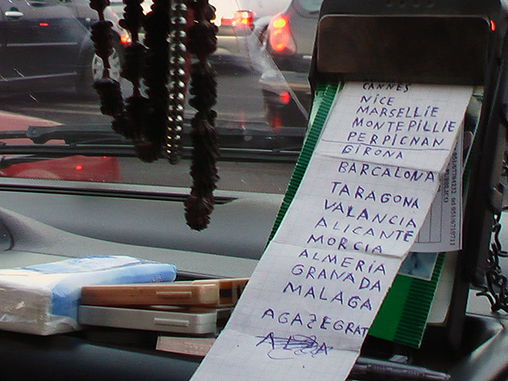 CANNES
NICE
MARSELLIE
MONTEPILLIE
PERPIGNAN
GIRONA
BARCALONA
TARAGONA
VALANCIA
ALICANTE
MORCIA
ALMERIA
GRANADA
MALAGA
AGAZEGRAT